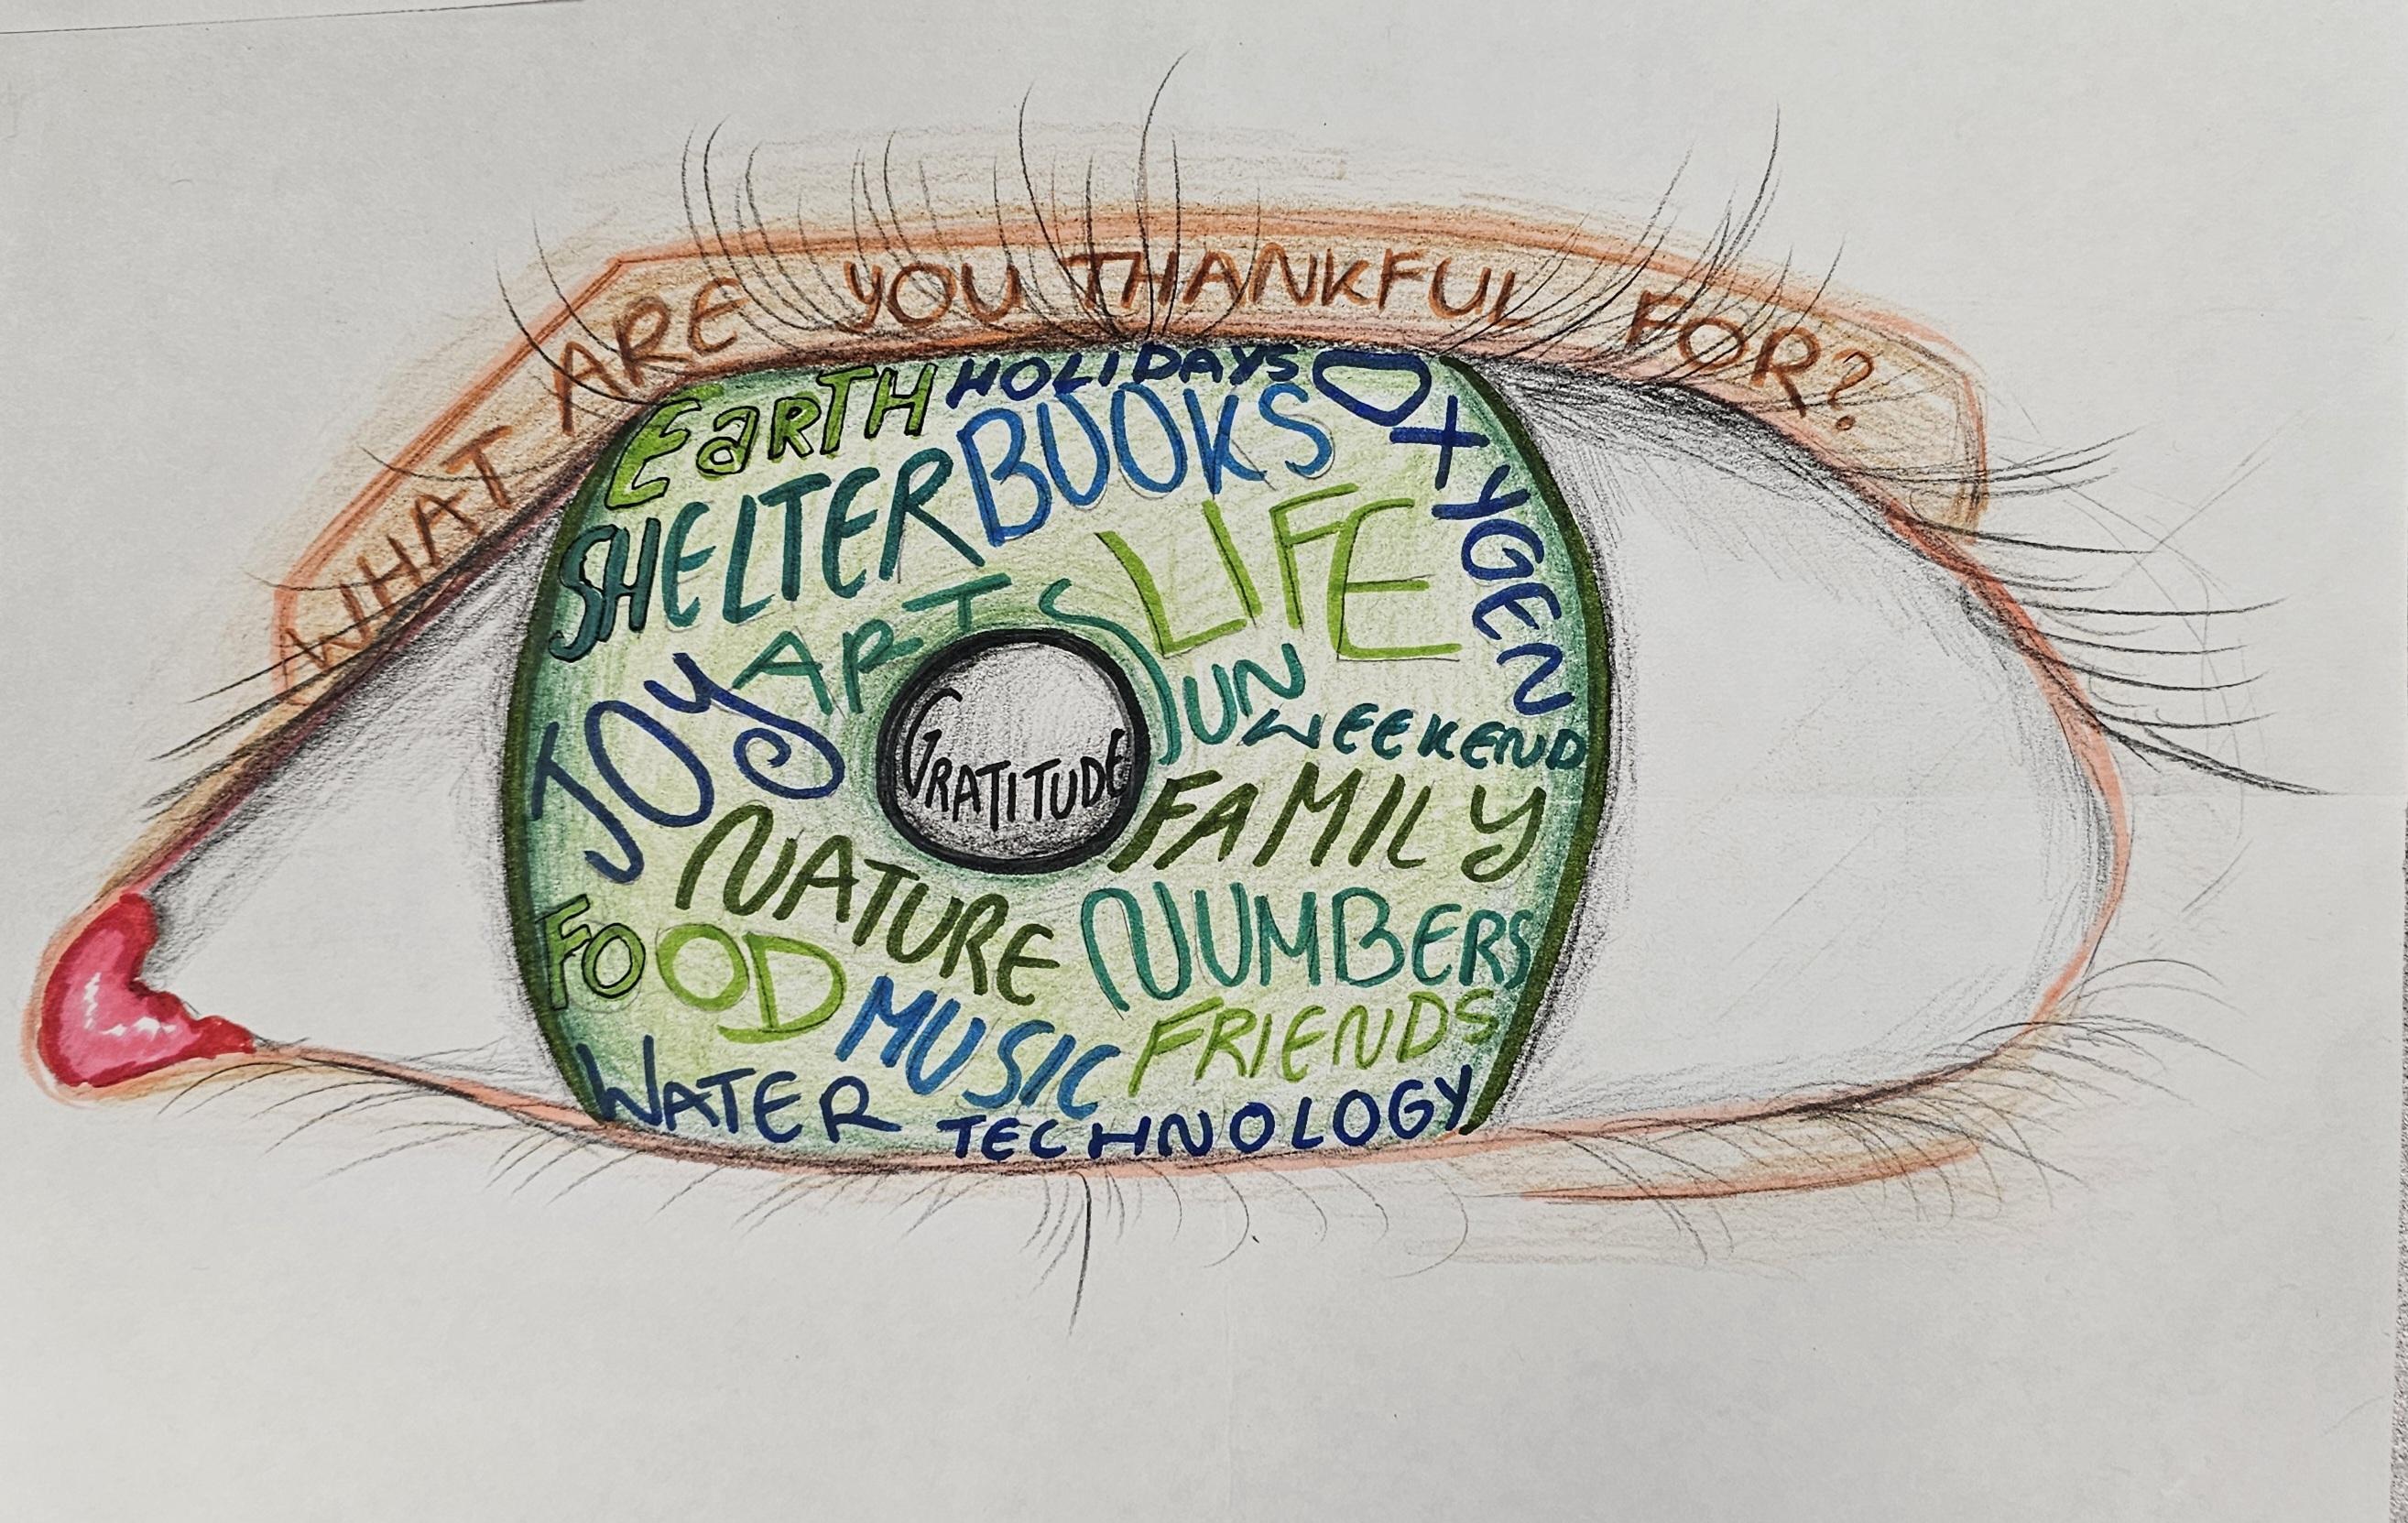 WHAT ARE YOU THANKFUL FOR?
HOLIDAYS
EARTH
BOOKS
OXYGEN
SHELTER
LIFE
ARTS
SUN
JOY
WEEKEND
GRATITUDE
FAMILY
NATURE
NUMBERS
FOOD
MUSIC
FRIENDS
WATER
TECHNOLOGY